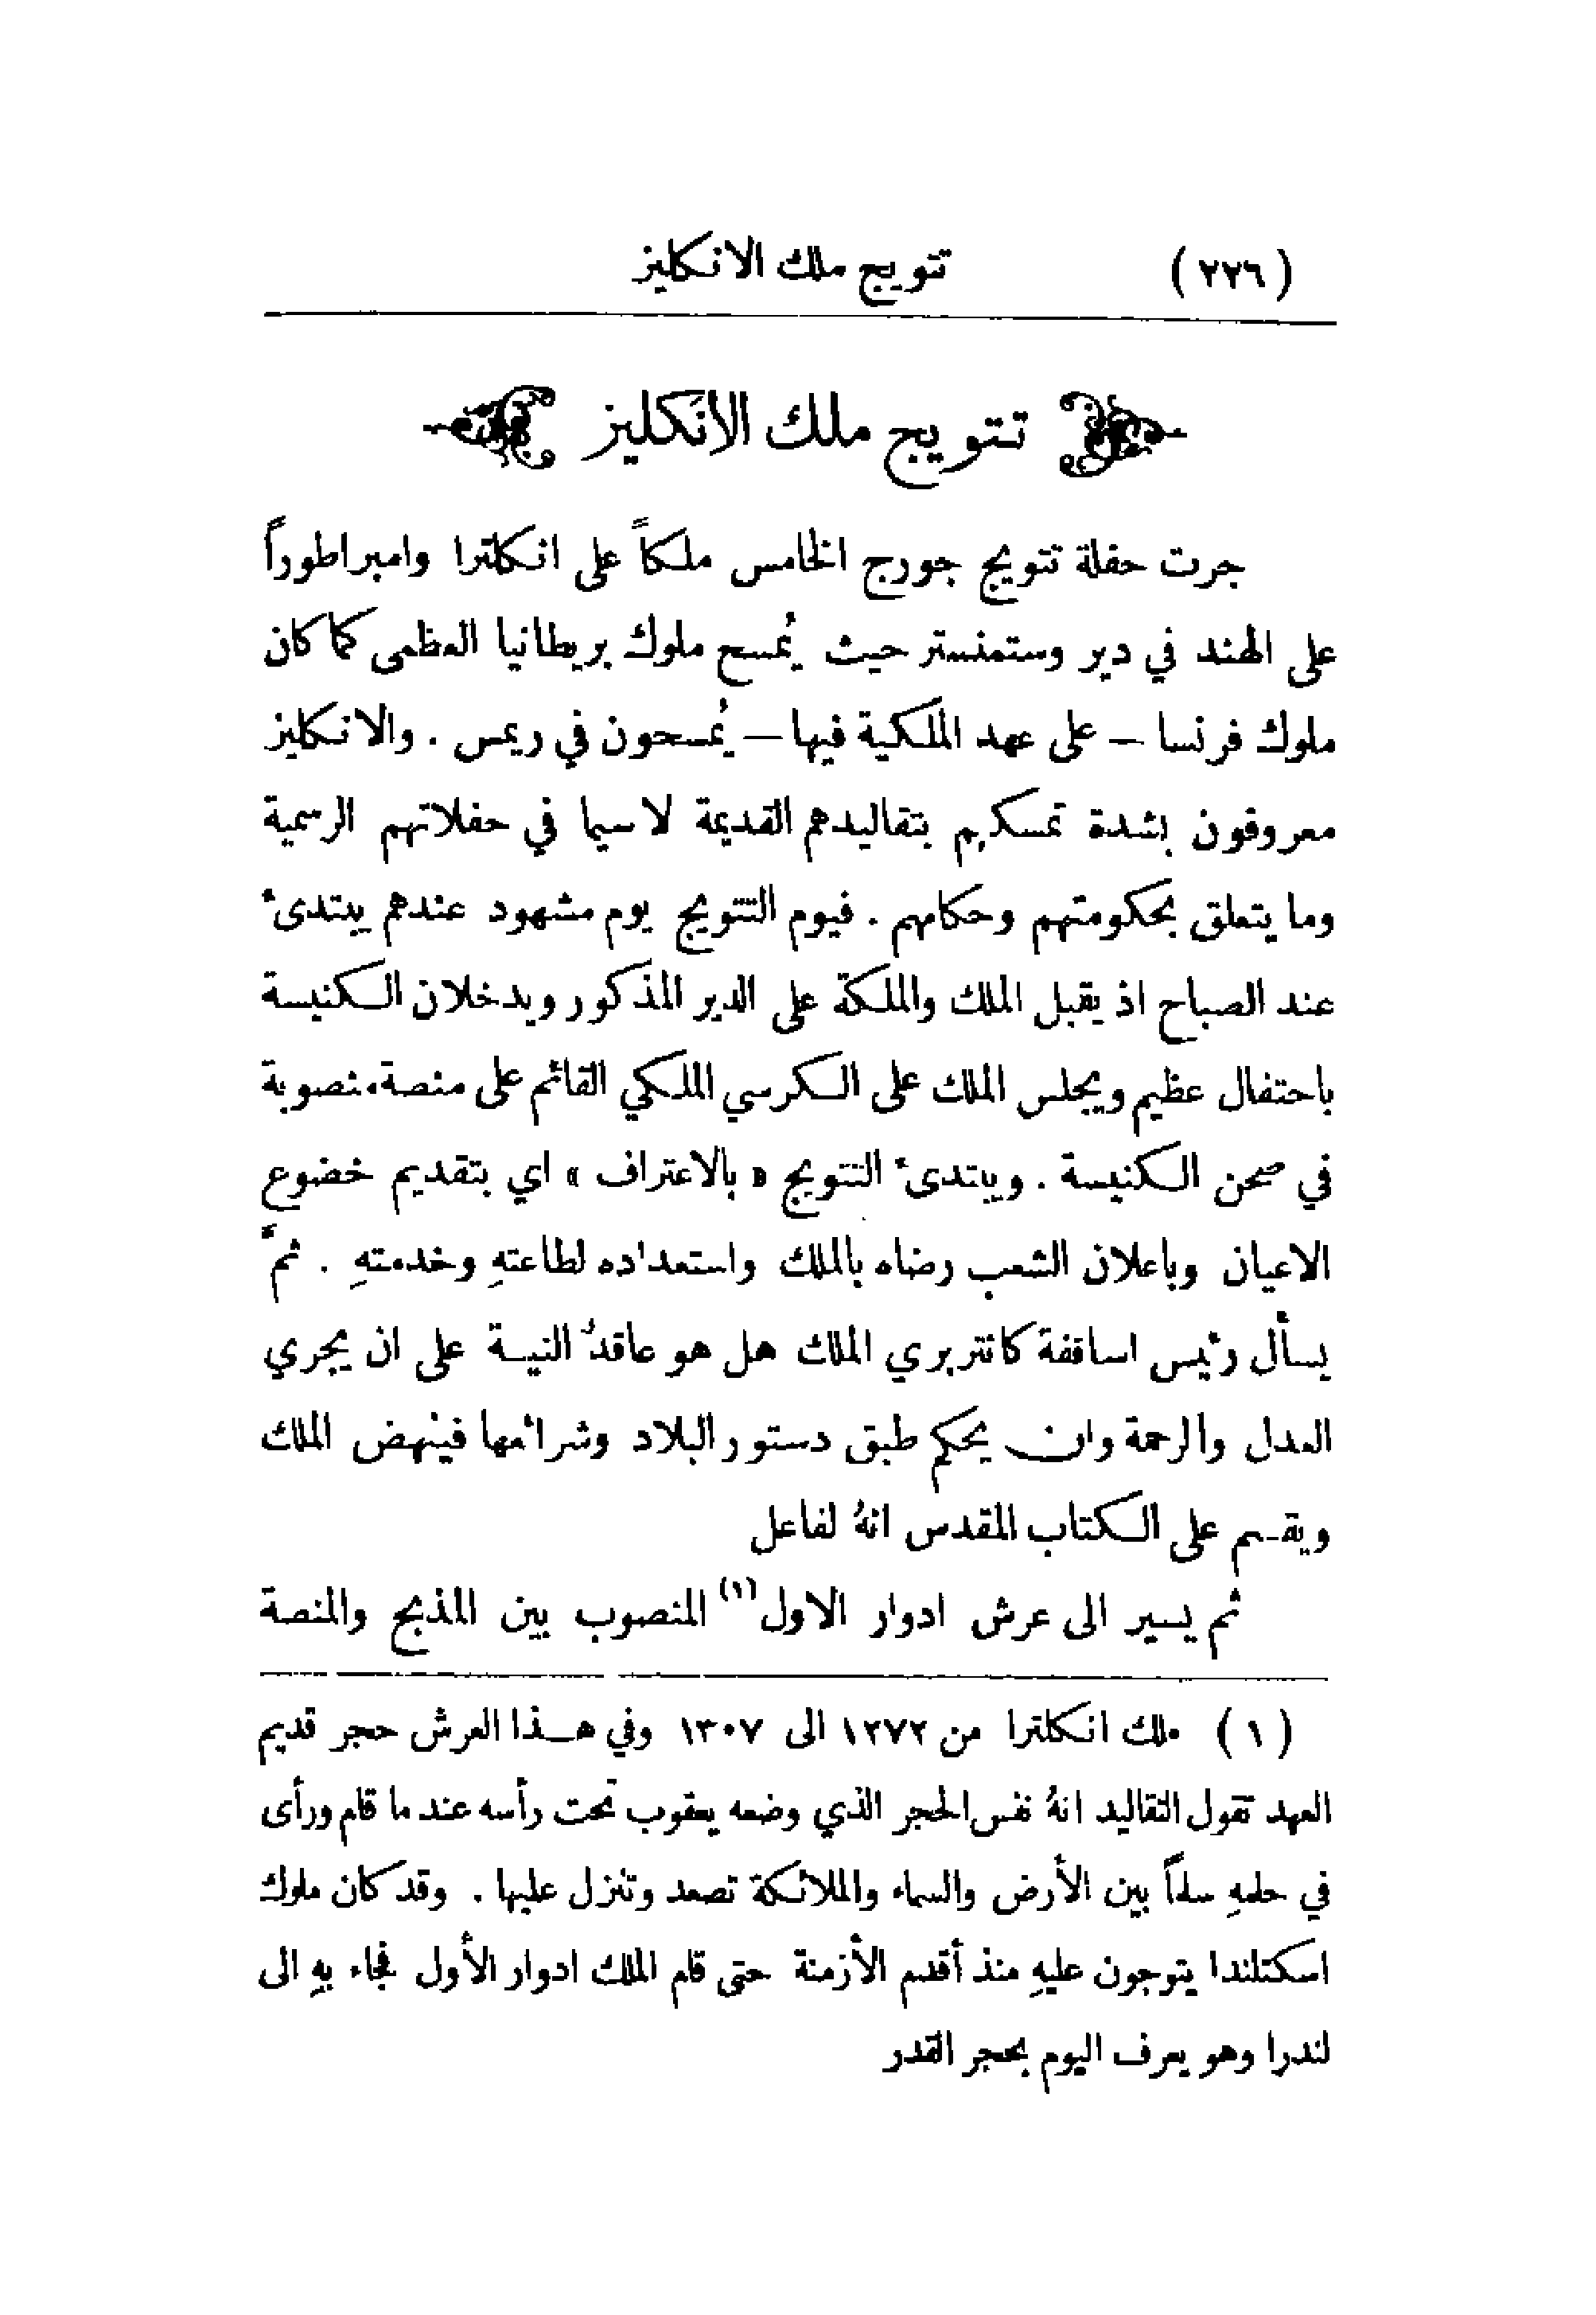 (٢٢٦) تتويج ملك الانكليز
تتويج ملك الانكليز
جرت حفلة تتويج جورج الخامس ملكاً على انكلترا وامبراطوراً
على الهند في دير وستمنستر حيث يُمسح ملوك بريطانيا العظمى كما كان
ملوك فرنسا – على عهد الملكية فيها – يُمسحون في ريمس . والانكليز
معروفون بشدة تمسكهم بتقاليدهم القديمة لا سيما في حفلاتهم الرسمية
وما يتعلق بحكومتهم وحكامهم . فيوم التتويج يوم مشهود عندهم يبتدىء
عند الصباح اذ يقبل الملك والملكة على الدير المذكور ويدخلان الكنيسة
باحتفال عظيم ويجلس الملك على الكرسي الملكي القائم على منصة منصوبة
في صحن الكنيسة . ويبتدىء التتويج « بالاعتراف » اي بتقديم خضوع
الاعيان وباعلان الشعب رضاه بالملك واستعداده لطاعتهِ وخدمتهِ . ثمَّ
يسأل رئيس اساقفة كانتربري الملك هل هو عاقدٌ النيـة على ان يجري
العدل والرحمة وان يحكم طبق دستور البلاد وشرائعها فينهض الملك
ويقسم على الكتاب المقدس انهُ لفاعل
ثم يسير الى عرش ادوار الاول (١) المنصوب بين المذبح والمنصة
(١) ملك انكلترا من ١٢٧٢ الى ١٣٠٧ وفي هـذا العرش حجر قديم
العهد تقول التقاليد انهُ نفس الحجر الذي وضعه يعقوب تحت رأسه عند ما قام ورأى
في حلمهِ سلماً بين الأرض والسماء والملائكة تصعد وتنزل عليها . وقد كان ملوك
اسكتلندا يتوجون عليهِ منذ أقدم الأزمنة حتى قام الملك ادوار الأول فجاء بهِ الى
لندرا وهو يعرف اليوم بحجر القدر